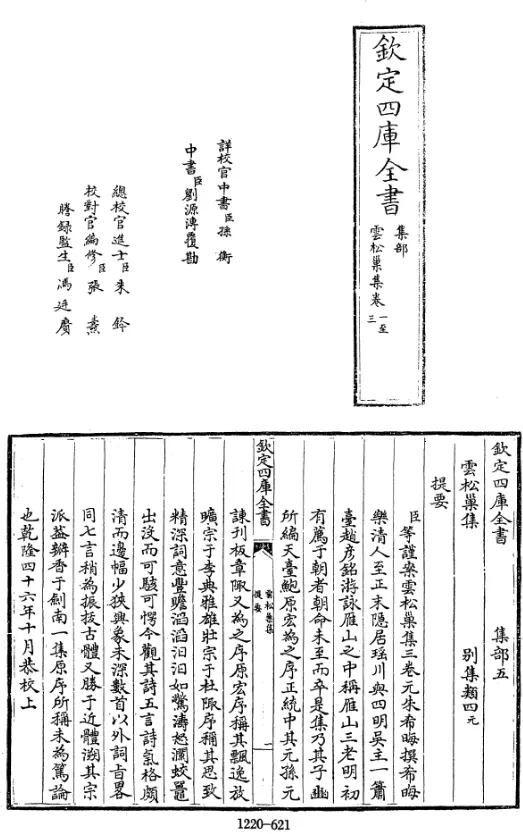 欽定四庫全書
集部
雲松巢集卷一至三
詳校官中書臣孫衡
中書臣劉源溥覆勘
總校官進士臣朱鈐
校對官編修臣張燾
謄錄監生臣馮廷
欽定四庫全書 集部五
雲松巢集 別集類四元
提要
臣等謹案雲松巢集三卷元朱希晦撰希晦
樂清人至正末隱居瑶川與四明吳主一蕭
臺趙彦銘游詠雁山之中稱雁山三老明初
有薦于朝者朝命未至而卒是集乃其子幽
所編天臺鮑原宏為之序正統中其元孫元
欽定四庫全書
雲松巢集
提要
一
諫刊板章陬又為之序原宏序稱其飄逸放
曠宗于李典雅雄壯宗于杜陬序稱其思致
精深詞意豐贍滔滔汩汩如驚濤怒瀾蛟鼉
出没而可駭可愕今觀其詩五言詩氣格頗
清而邊幅少狹興象未深數首以外詞旨畧
同七言稍為振拔古體又勝于近體溯其宗
派葢瓣香于劍南一集原序所稱未為篤論
也乾隆四十六年十月恭校上
1220-621